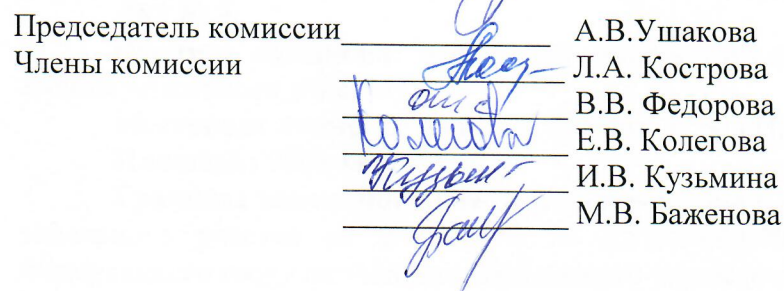 Председатель комиссии А.В.Ушакова
Члены комиссии Л.А. Кострова
В.В. Федорова
Колегова Е.В. Колегова
И.В. Кузьмина
М.В. Баженова